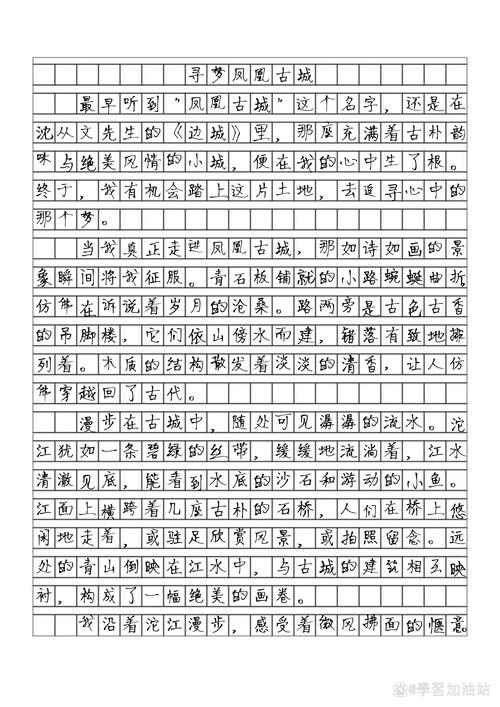 寻梦凤凰古城
最早听到“凤凰古城”这个名字，还是在
沈从文先生的《边城》里，那座充满着古朴韵
味与绝美风情的小城，便在我的心中生了根。
终于，我有机会踏上这片土地，去追寻心中的
那个梦。
当我真正走进凤凰古城，那如诗如画的景
象瞬间将我征服。青石板铺就的小路蜿蜒曲折，
仿佛在诉说着岁月的沧桑。路两旁是古色古香
的吊脚楼，它们依山傍水而建，错落有致地排
列着。木质的结构散发着淡淡的清香，让人仿
佛穿越回了古代。
漫步在古城中，随处可见潺潺的流水。沱
江犹如一条碧绿的丝带，缓缓地流淌着，江水
清澈见底，能看到水底的沙石和游动的小鱼。
江面上横跨着几座古朴的石桥，人们在桥上悠
闲地走着，或驻足欣赏风景，或拍照留念。远
处的青山倒映在江水中，与古城的建筑相互映
衬，构成了一幅绝美的画卷。
我沿着沱江漫步，感受着微风拂面的惬意。
@學習加油站